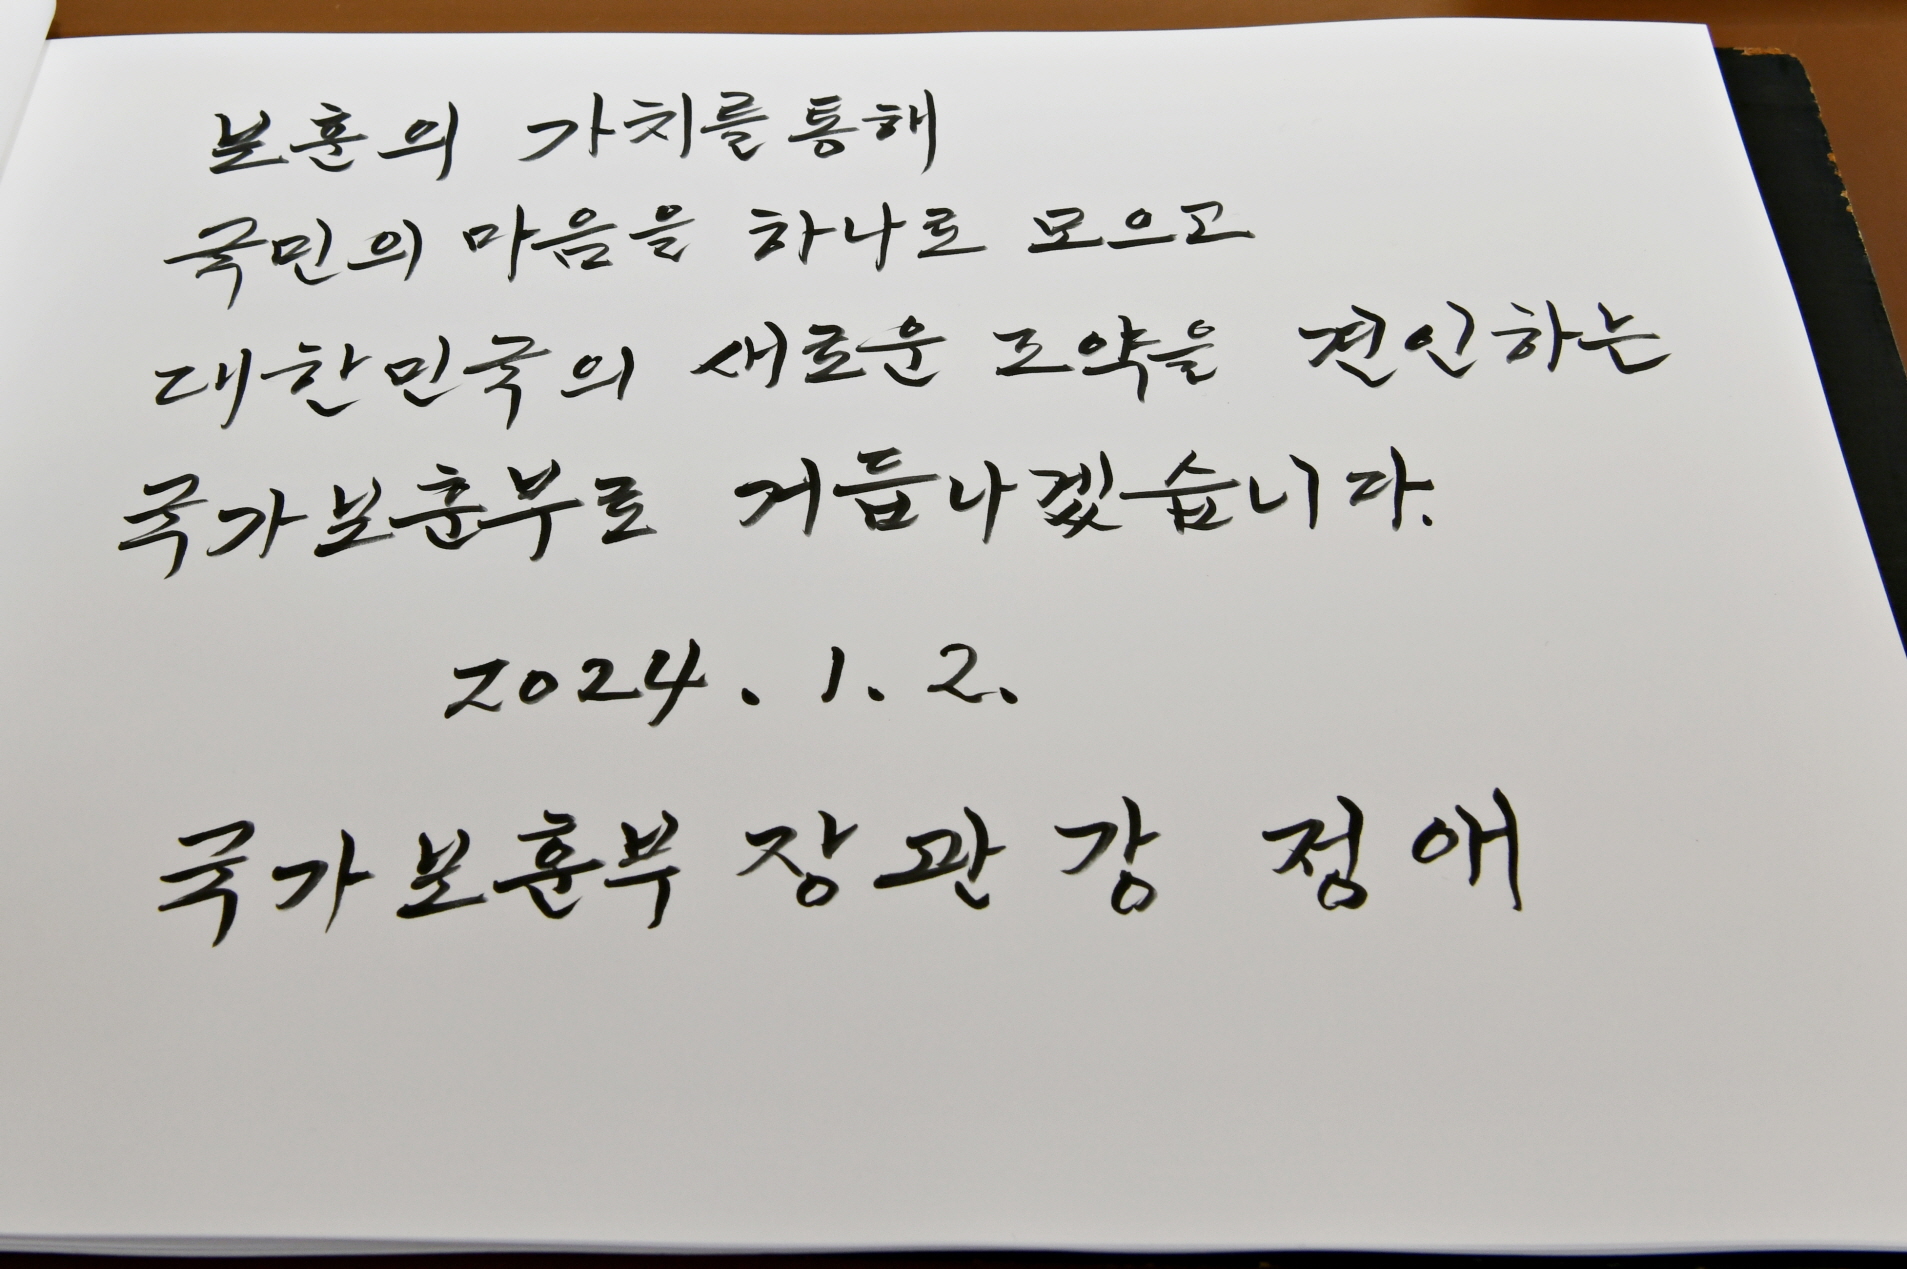 보훈의 가치를 통해
국민의 마음을 하나로 모으고
대한민국의 새로운 도약을 견인하는
국가보훈부로 거듭나겠습니다.
2024. 1. 2.
국가보훈부 장관 강 정애